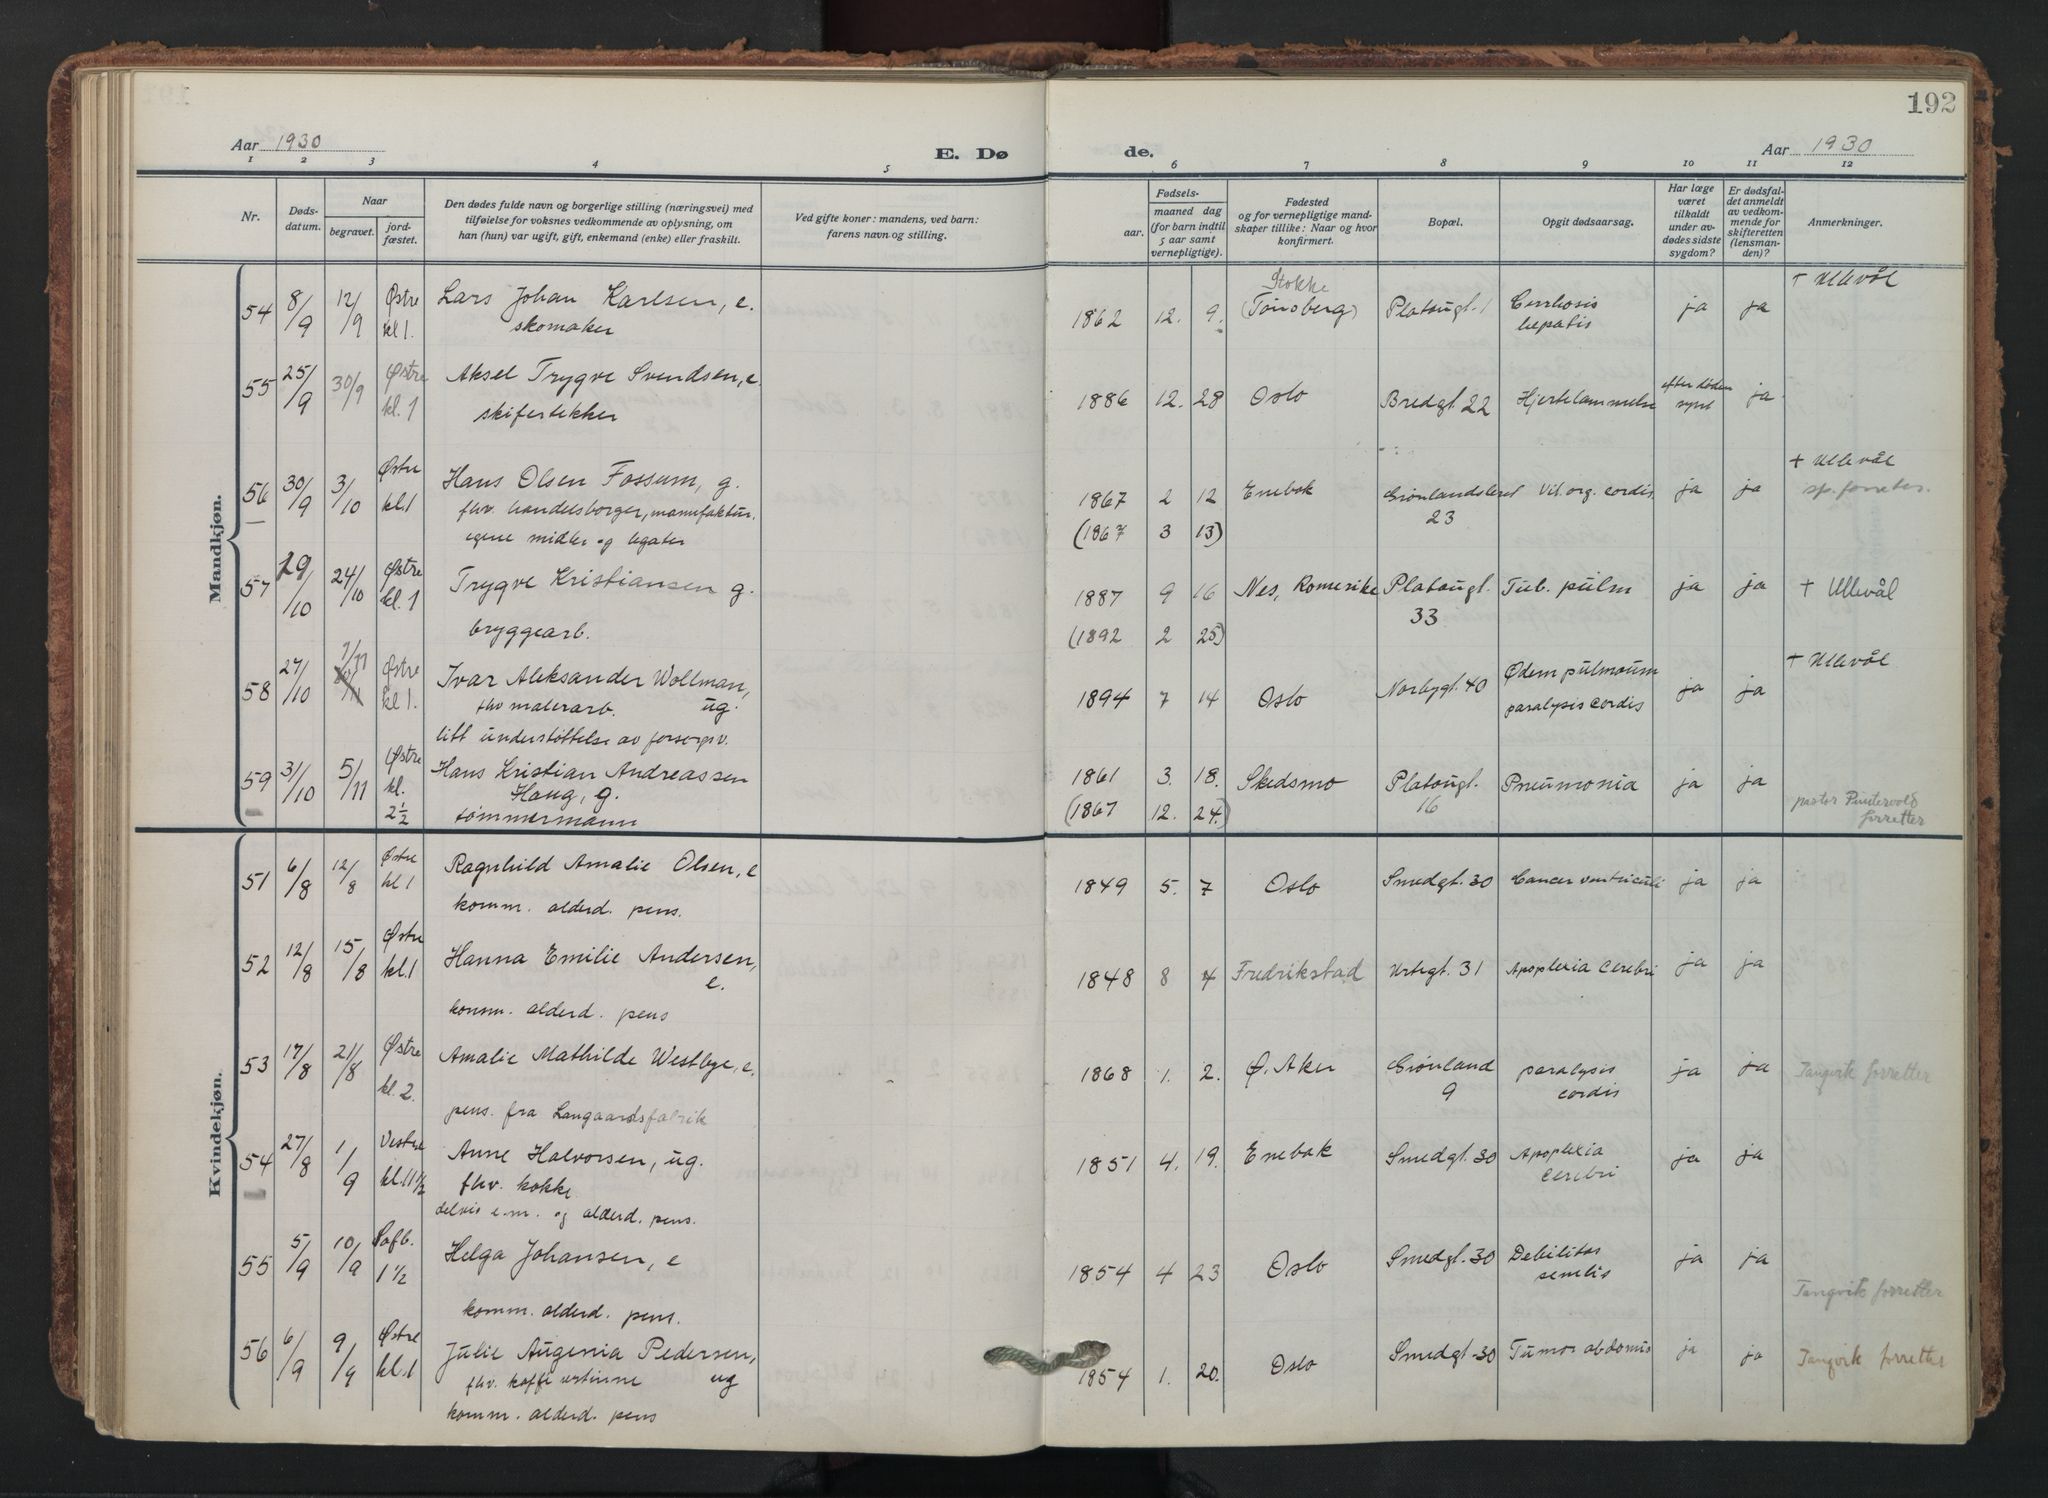 192
Aar 1930
E. Dø
de.
Aar 1930
1 2 3 4 5 6 7 8 9 10 11 12
Nr.
Døds-
datum.
Naar
begravet.
jord-
fæstet.
Den dødes fulde navn og borgerlige stilling (næringsvei) med
tilføielse for voksnes vedkommende av oplysning, om
han (hun) var ugift, gift, enkemand (enke) eller fraskilt.
Ved gifte koner: mandens, ved barn:
farens navn og stilling.
Fødsels-
aar.
maaned dag
(for barn indtil
5 aar samt
vernepligtige).
Fødested
og for vernepligtige mand-
skaper tillike: Naar og hvor
konfirmert.
Bopæl.
Opgit dødsaarsag.
Har læge
været
tilkaldt
under av-
dødes sidste
sygdom?
Er dødsfal-
det anmeldt
av vedkom-
mende for
skifteretten
(lensman-
den)?
Anmerkninger.
Mandkjøn.
54 8/9 12/9 Østre kl 1. Lars Johan Karlsen, e.
skomaker
1862 12. 9. Stokke
(Tønsberg) Platougt. 1 Cerrhosis
hepatis ja ja + Ullevål
55 25/9 30/9 Østre kl. 1 Aksel Trygve Svendsen, e.
skifertekker
1886 12. 28 Oslo Bredgt. 22 Hjertelammelse efter døden
synt ja
56 30/9 3/10 Østre kl 1 Hans Olsen Fossum, g.
fhv. handelsborger, manufaktur.
egne midler og legater
1867 2 12 Enebak Grønlandsleret
23 Vit. org. cordis ja ja + Ullevål
sp. forretter.
(1867 3 13)
57 29/10 24/10 Østre kl. 1 Trygve Kristiansen g.
bryggearb.
1887 9 16 Nes, Romerike Platougt.
33 Tub. pulm ja ja + Ullevål
(1892 2 25)
58 27/10 1/11 Østre kl 1. Ivar Aleksander Wollman,
fhv malerarb. ug.
litt understøttelse av forsorgsv.
1894 7 14 Oslo Norbygt. 40 Ødem pulmoum
paralysis cordis ja ja + Ullevål
59 31/10 5/11 Østre kl. 2½ Hans Kristian Andreassen
Haug, g.
tømmermann
1861 3. 18. Skedsmo Platougt.
16 Pneumonia ja ja
(1867 12. 24.)
pastor
forretter
Kvindekjøn.
51 6/8 12/8 Østre kl 1 Ragnhild Amalie Olsen, e
komm. alderd. pens.
1849 5. 7 Oslo Smedgt. 30 Cancer ventriculi ja ja
52 12/8 15/8 Østre kl. 1 Hanna Emilie Andersen,
e.
komm. alderd. pens
1848 8 4 Fredrikstad Urtegt. 31 Apoplexia Cerebri ja ja
53 17/8 21/8 Østre kl. 2. Amalie Mathilde Westbye, e.
pens. fra Langaardsfabrik
1868 1. 2. Ø. Aker Grønland
9 paralysis
cordis ja ja Tangvik forretter
54 27/8 1/9 Vestre kl. 11½ Anne Halvorsen, ug.
fhv. kokke
delvis e.m. og alderd. pens.
1851 4. 19. Enebak Smedgt. 30 Apoplexia
Cerebri ja ja
55 5/9 10/9 Sofb. 1½ Helga Johansen, e
komm. alderd. pens.
1854 4 23 Oslo Smedgt. 30 Debilitas
senilis ja ja
Tangvik forretter
56 6/9 9/9 Østre kl. 1 Julie Augenia Pedersen,
fhv. kaffevertinne ug
komm. alderd. pens
1854 1. 20. Oslo Smedgt. 30 Tumor abdomis ja ja Tangvik forretter